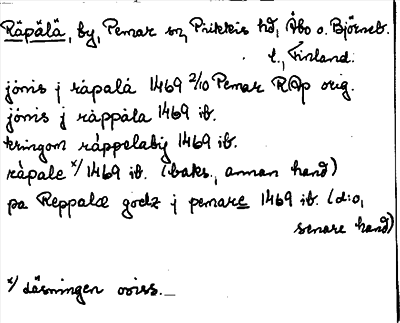 Räpälä, by, Pemar sn, Piikkis hd, Åbo o. Björneb.
l., Finland.
jönis j räpalä 1469 2/10 Pemar RAp orig.
jönis j räppäla 1469 ib.
kringom räppelaby 1469 ib.
räpale x/ 1469 ib. (baks., annan hand)
pa Reppalæ godz j pemare 1469 ib. (d:o,
senare hand)
x/ Läsningen oviss.